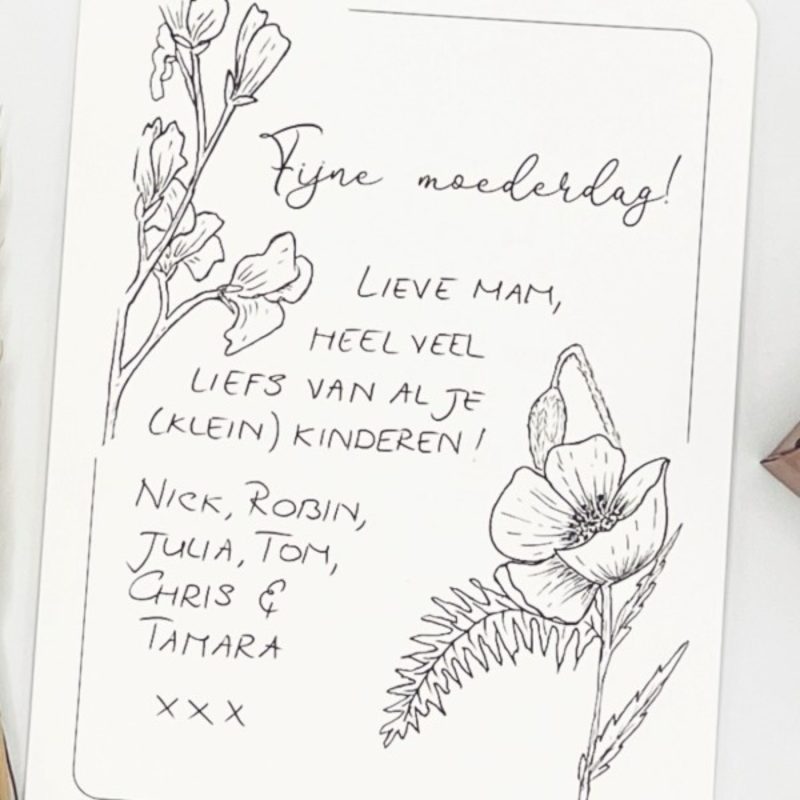 Fijne moederdag!
LIEVE MAM,
HEEL VEEL
LIEFS VAN AL JE
(KLEIN) KINDEREN!
NICK, ROBIN,
JULIA, TOM,
CHRIS &
TAMARA
XXX